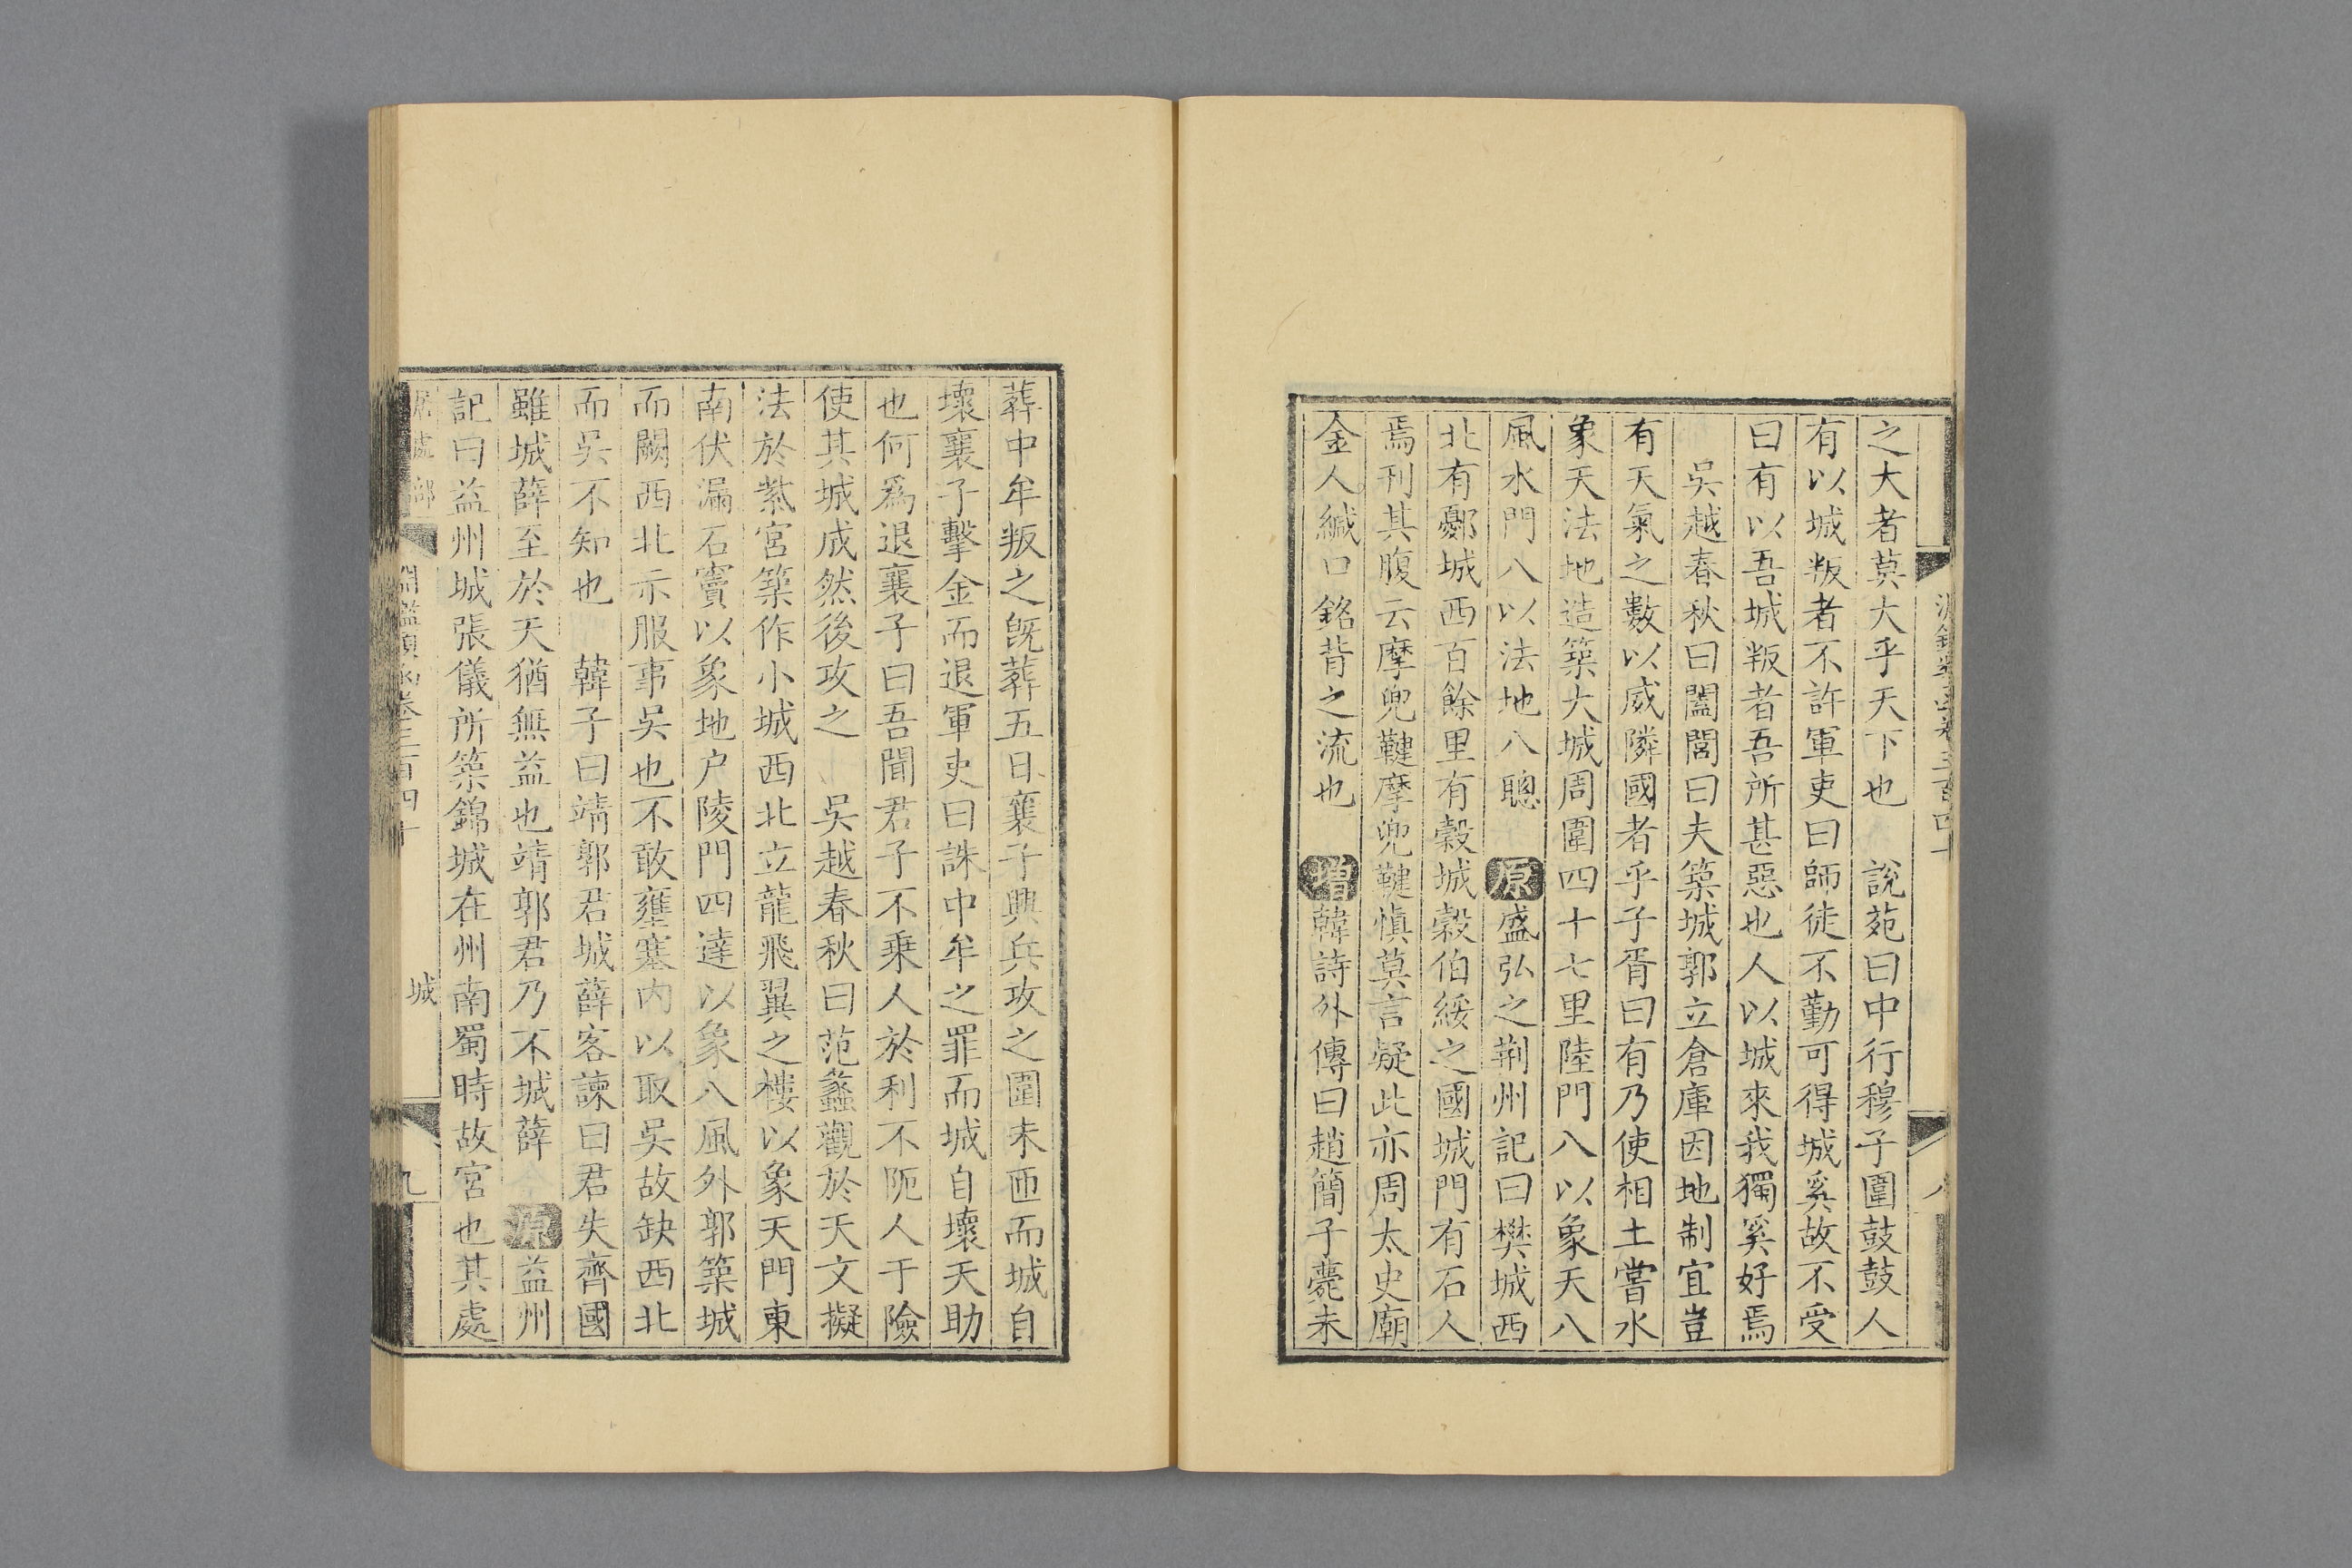 之大者莫大乎天下也　說苑曰中行穆子圍鼓鼓人
有以城叛者不許軍吏曰師徒不勤可得城奚故不受
曰有以吾城叛者吾所甚惡也人以城來我獨奚好焉
吳越春秋曰闔閭曰夫築城郭立倉庫因地制宜豈
有天氣之數以威隣國者乎子胥曰有乃使相土嘗水
象天法地造築大城周圍四十七里陸門八以象天八
風水門八以法地八聰　原盛弘之荆州記曰樊城西
北有鄾城西百餘里有穀城穀伯綏之國城門有石人
焉刊其腹云摩兜鞬摩兜鞬慎莫言疑此亦周太史廟
金人緘口銘背之流也　增韓詩外傳曰趙簡子薨未
葬中牟叛之旣葬五日襄子興兵攻之圍未匝而城自
壞襄子擊金而退軍吏曰誅中牟之罪而城自壞天助
也何爲退襄子曰吾聞君子不乘人於利不阨人于險
使其城成然後攻之　吳越春秋曰范蠡觀於天文擬
法於紫宮築作小城西北立龍飛翼之樓以象天門東
南伏漏石竇以象地户陵門四達以象八風外郭築城
而闕西北示服事吳也不敢壅塞内以取吳故缺西北
而吳不知也　韓子曰靖郭君城薛客諫曰君失齊國
雖城薛至於天猶無益也靖郭君乃不城薛　原益州
記曰益州城張儀所築錦城在州南蜀時故宮也其處
淵鑑類函卷三百四十　城　九